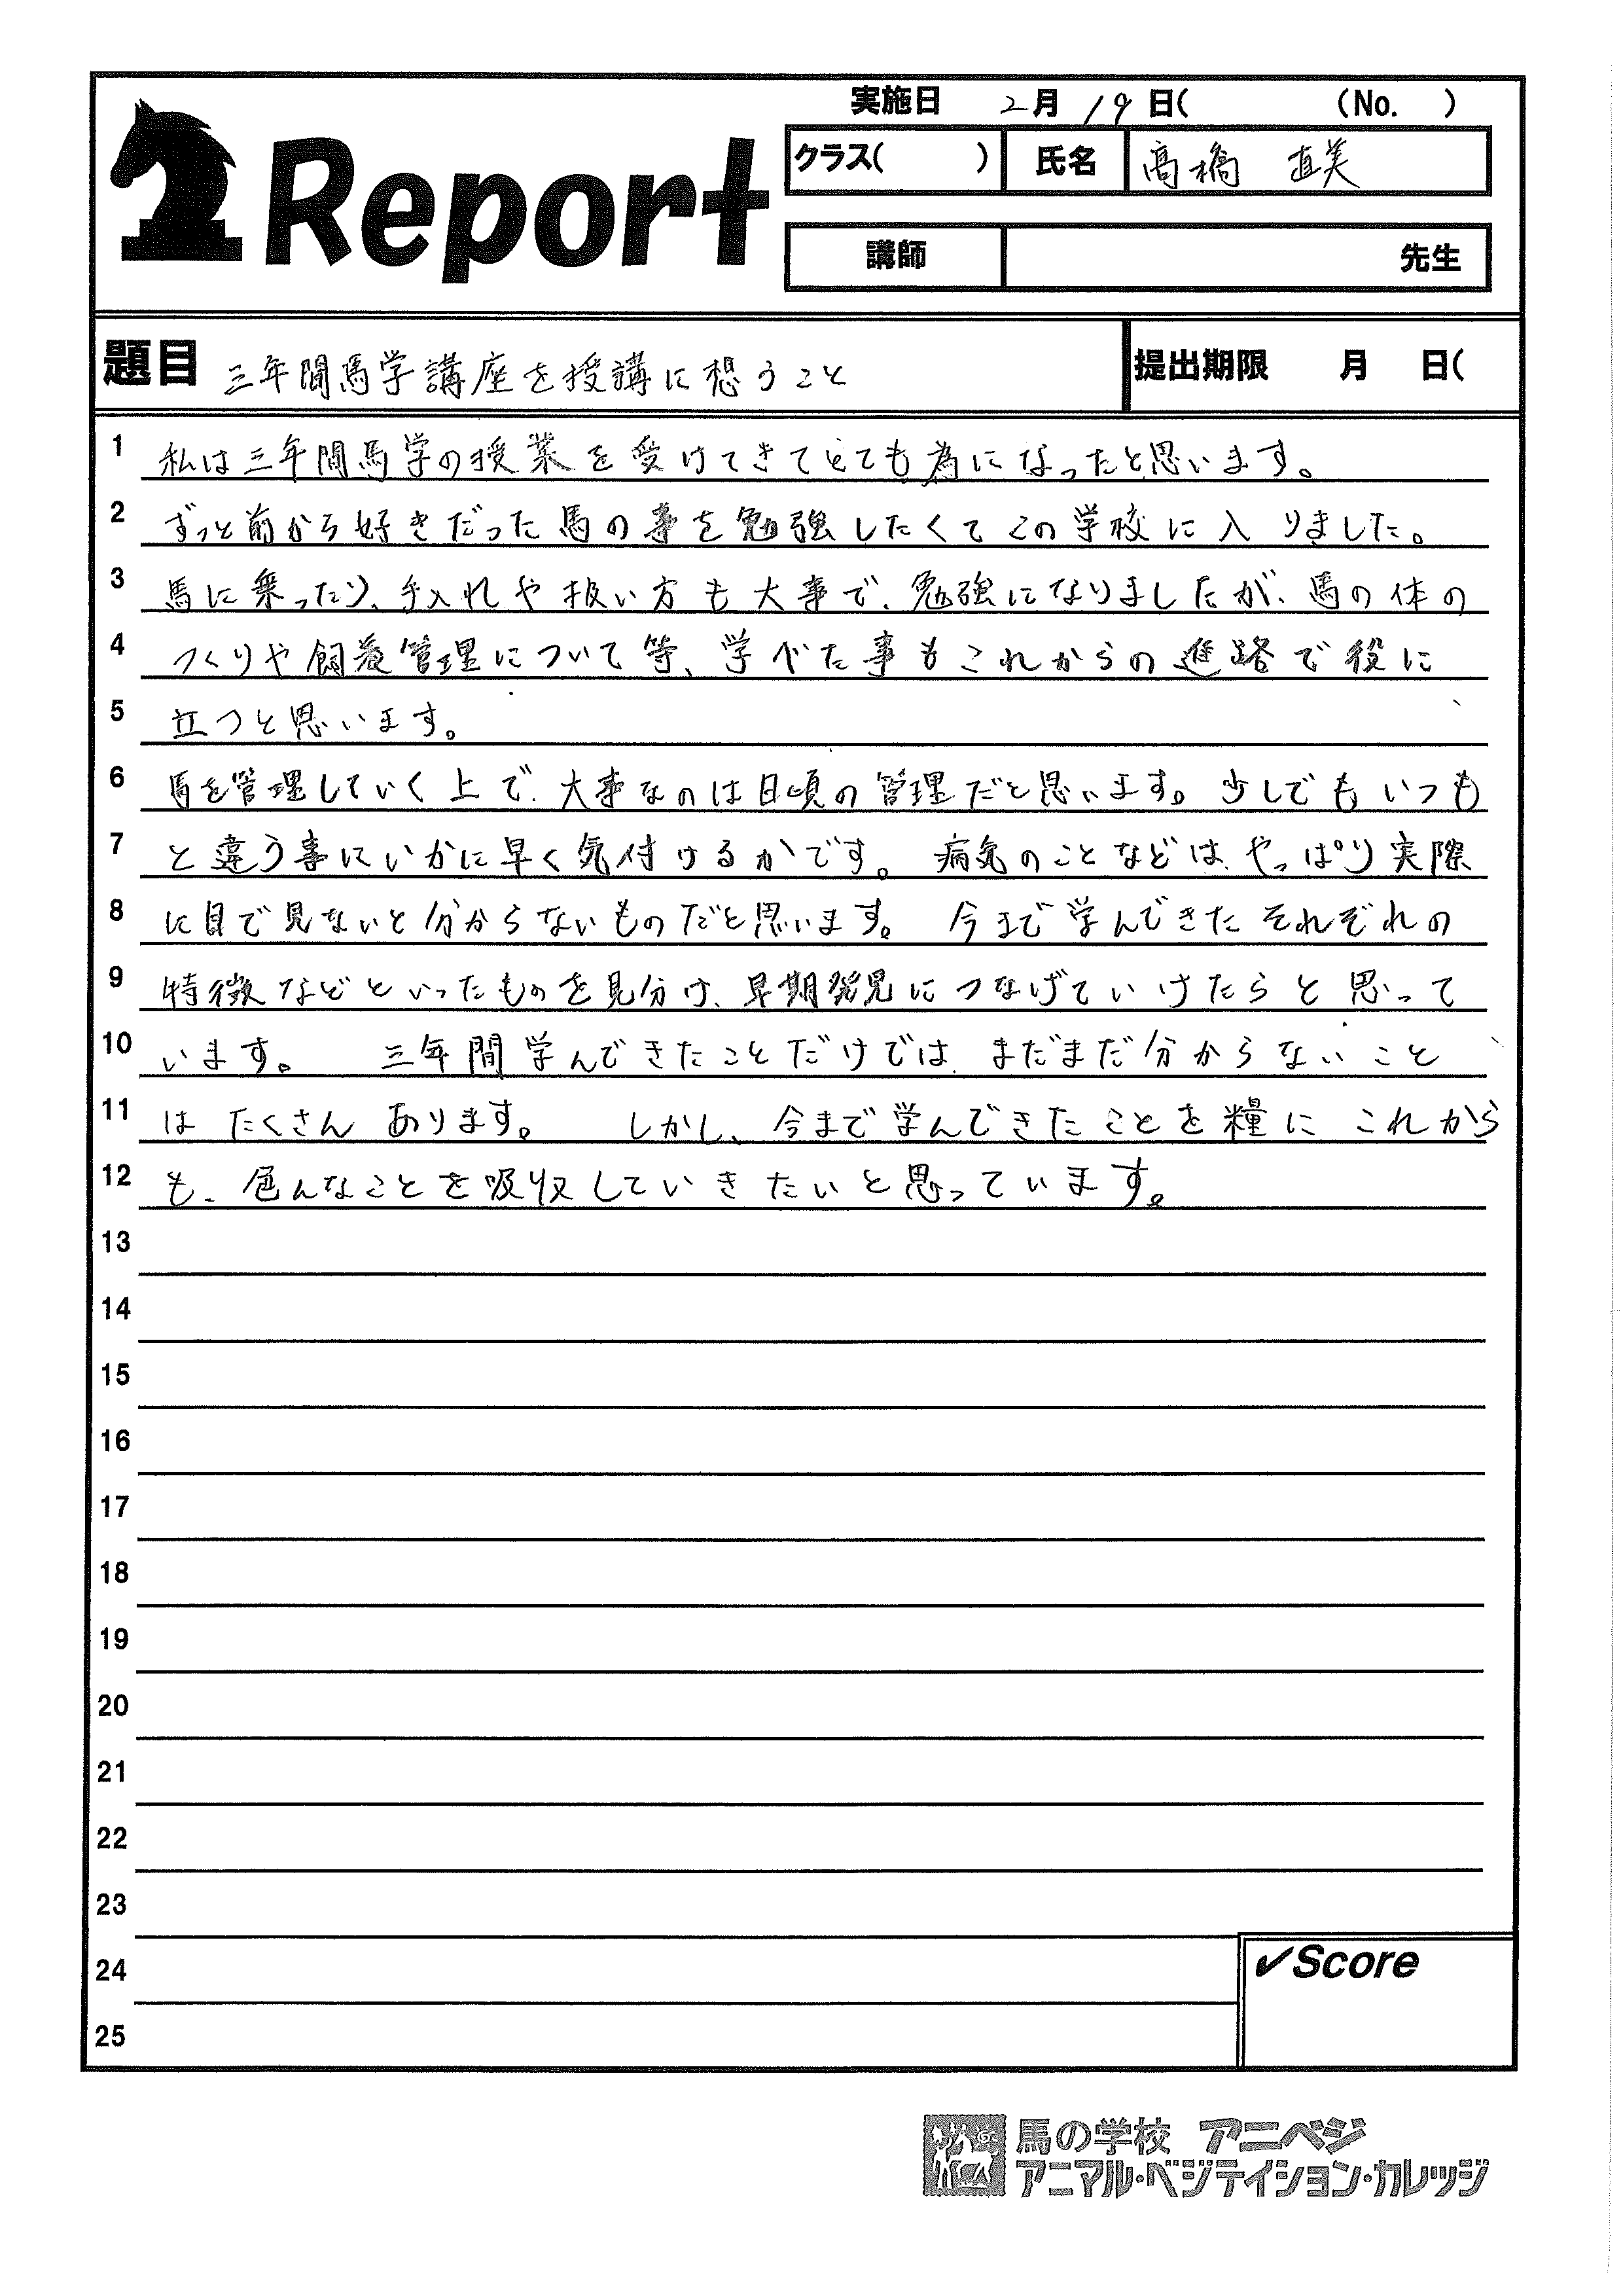 実施日 2月 19 日( (No. )
Report
クラス( ) 氏名 髙橋 直美
講師 先生
題目 三年間馬学講座を授講に想うこと 提出期限 月 日(
1 私は三年間馬学の授業を受けてきてとても為になったと思います。
2 ずっと前から好きだった馬の事を勉強したくてこの学校に入りました。
3 馬に乗ったり、手入れや扱い方も大事で、勉強になりましたが、馬の体の
4 つくりや飼養管理について等、学べた事もこれからの進路で役に
5 立つと思います。
6 馬を管理していく上で、大事なのは日頃の管理だと思います。少しでもいつも
7 と違う事にいかに早く気付けるかです。 病気のことなどは、やっぱり実際
8 に目で見ないと分からないものだと思います。 今まで学んできたそれぞれの
9 特徴などといったものを見分け、早期発見につなげていけたらと思って
10 います。 三年間学んできたことだけでは、まだまだ分からないこと
11 はたくさんあります。 しかし、今まで学んできたことを糧にこれから
12 も、色んなことを吸収していきたいと思っています。
13
14
15
16
17
18
19
20
21
22
23
24 ✓Score
25
馬の学校 アニベジ
アニマル・ベジテイション・カレッジ